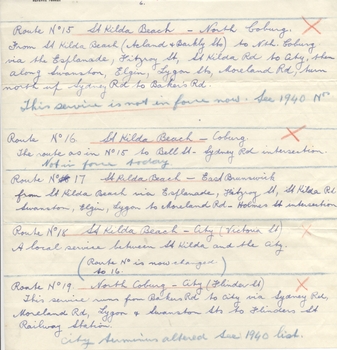 Route No 15 St Kilda Beach - North Coburg.
From St Kilda Beach (Acland & Barkly Sts) to Nth Coburg
via the Esplanade, Fitzroy St, St Kilda Rd to City, then
along Swanston, Elgin, Lygon Sts, Moreland Rd, turn
north up Sydney Rd to Bakers Rd.
This service is not in force now. See 1940
Route No 16. St Kilda Beach - Coburg.
The route as in No 15 to Bell St - Sydney Rd intersection.
Not in force today.
Route No 17 St Kilda Beach - East Brunswick
from St Kilda Beach via Esplanade, Fitzroy St, St Kilda Rd
Swanston, Elgin, Lygon to Moreland Rd - Holmes St intersection
Route No 18 St Kilda Beach - City (Victoria St)
A local service between St Kilda and the City.
(Route No is now changed
to 16.)
Route No 19. North Coburg - City (Flinders St)
This service runs from Bakers Rd to City via Sydney Rd,
Moreland Rd, Lygon & Swanston Sts to Flinders St
Railway Station.
City terminus altered See 1940 list.